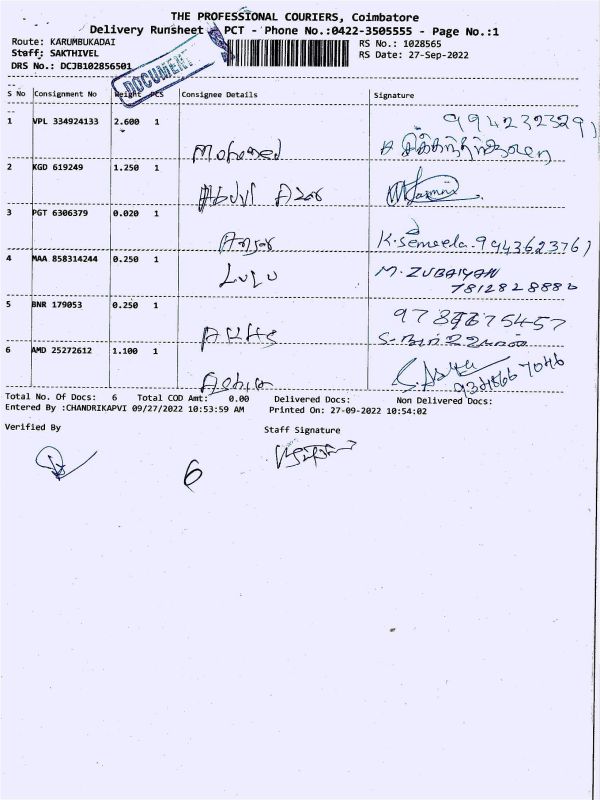 THE PROFESSIONAL COURIERS, Coimbatore
Delivery Runsheet PCT - Phone No.:0422-3505555 - Page No.:1
Route: KARUMBUKADAI
RS No.: 1028565
Staff: SAKTHIVEL
RS Date: 27-Sep-2022
DRS No.: DCJB102856501
DOCUMENT
S No Consignment No Weight PCS Consignee Details Signature
1 VPL 334924133 2.600 1
9942323291
Mohamed
2 KGD 619249 1.250 1
Abdul Azar
3 PGT 6306379 0.020 1
Ansar K.Semeela.9443623761
4 MAA 858314244 0.250 1
LULU M. ZUBAIYAN
7812828886
5 BNR 179053 0.250 1
6 AMD 25272612 1.100 1
Total No. Of Docs: 6 Total COD Amt: 0.00 Delivered Docs: Non Delivered Docs:
Entered By :CHANDRIKAPVI 09/27/2022 10:53:59 AM Printed On: 27-09-2022 10:54:02
Verified By Staff Signature
6